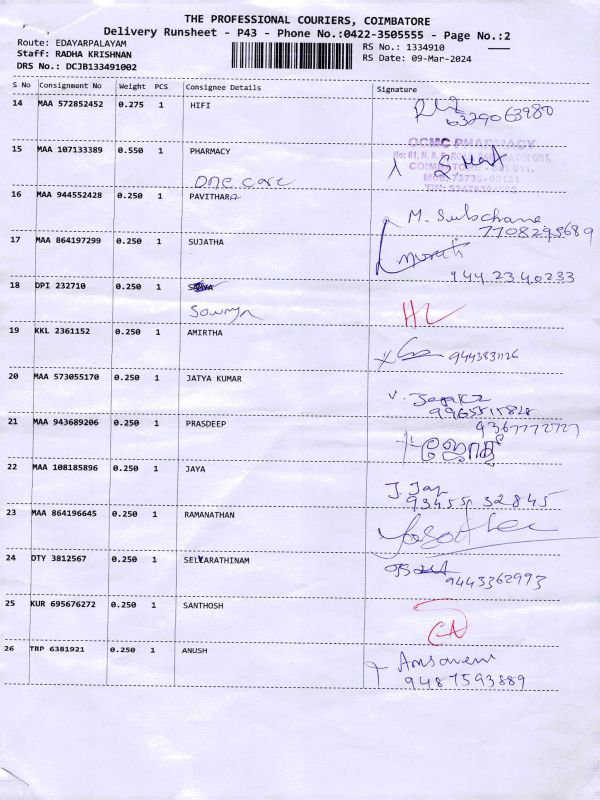 THE PROFESSIONAL COURIERS, COIMBATORE
Delivery Runsheet - P43 - Phone No.:0422-3505555 - Page No.:2
Route: EDAYARPALAYAM
Staff: RADHA KRISHNAN
DRS No.: DCJB133491002
RS No.: 1334910
RS Date: 09-Mar-2024
S No Consignment No Weight PCS Consignee Details Signature
14 MAA 572852452 0.275 1 HIFI
6329063980
15 MAA 107133389 0.550 1 PHARMACY
OCMC PHARMACY
one care
16 MAA 944552428 0.250 1 PAVITHARA
M. Subschana
7708295689
17 MAA 864197299 0.250 1 SUJATHA
9442340233
18 DPI 232710 0.250 1
Sowmya
19 KKL 2361152 0.250 1 AMIRTHA
9443831126
20 MAA 573055170 0.250 1 JATYA KUMAR
9965515828
21 MAA 943689206 0.250 1 PRASDEEP
9367772727
22 MAA 108185896 0.250 1 JAYA
J. Jay
93455 32845
23 MAA 864196645 0.250 1 RAMANATHAN
24 DTY 3812567 0.250 1 SELVARATHINAM
9443362993
25 KUR 695676272 0.250 1 SANTHOSH
26 TRP 6381921 0.250 1 ANUSH
Amsaveni
9487593889